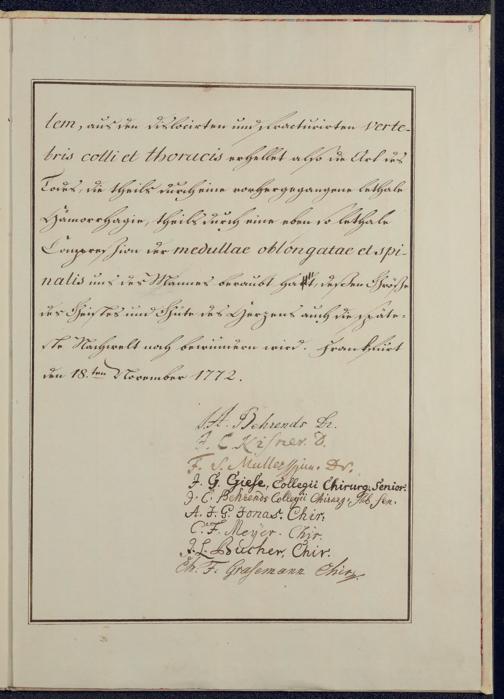 8
lem, aus den dislocirten und fracturirten Verte-
bris colli et thoracis erhellet also die Art des
Todes, die theils durch eine vorhergegangene lethale
Hämorrhagie, theils durch eine eben so lethale
Compression der medullae oblongatae et spi-
nalis uns des Mannes beraubt hat, dessen Größe
des Geistes und Güte des Herzens auch die späte-
ste Nachwelt noch bewundern wird. Frankfurt
den 18.ten November 1772.
Behrends Dr.
J. C. Kisner. D.
F. S. Müller Dr.
J. G. Giese, Collegii Chirurg. Senior.
J. C. Behrends Collegii Chirurg. Sen.
A. F. G. Jonas. Chir.
C. F. Meyer. Chir.
J. L. Bucher, Chir.
Ch. F. Grasemann Chir.